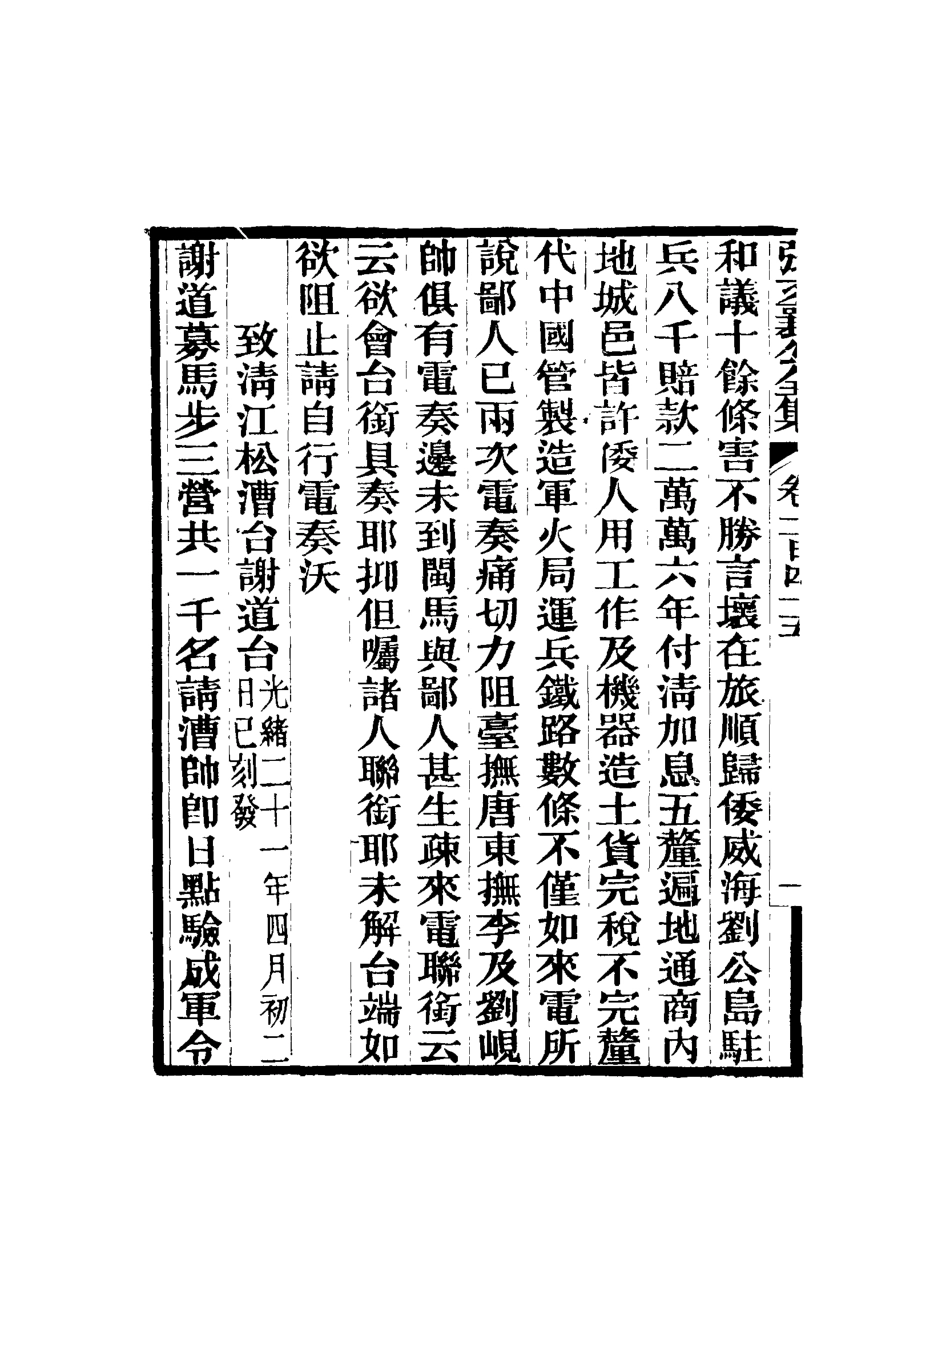 張文襄公全集 卷一百四十五 一
和議十餘條害不勝言壞在旅順歸倭威海劉公島駐
兵八千賠款二萬萬六年付清加息五釐遍地通商內
地城邑皆許倭人用工作及機器造土貨完稅不完釐
代中國管製造軍火局運兵鐵路數條不僅如來電所
說鄙人已兩次電奏痛切力阻臺撫唐東撫李及劉峴
帥俱有電奏邊未到閩馬與鄙人甚生疎來電聯銜云
云欲會台銜具奏耶抑但囑諸人聯銜耶未解台端如
欲阻止請自行電奏沃
致清江松漕台謝道台光緒二十一年四月初二日巳刻發
謝道募馬步三營共一千名請漕帥卽日點驗成軍令